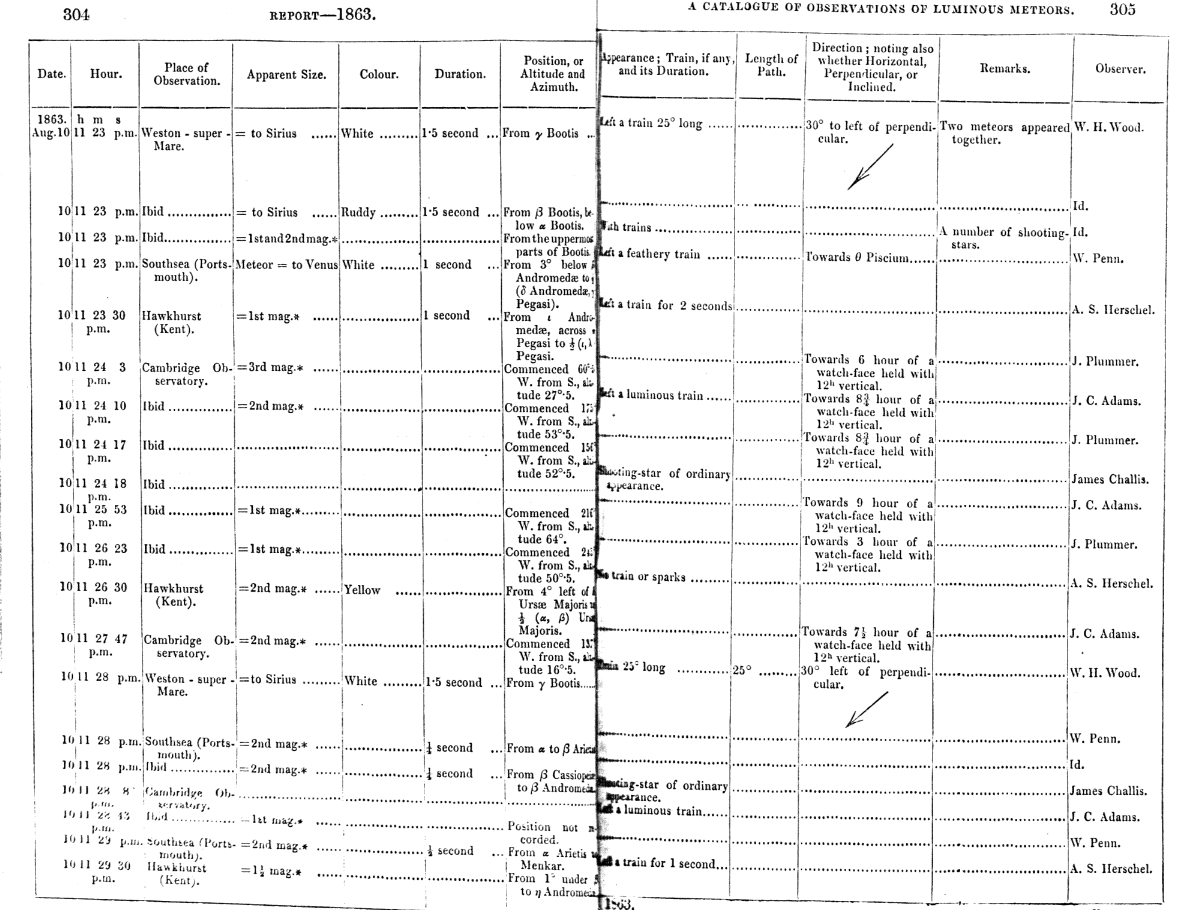 304 REPORT—1863.
Date. Hour. Place of Observation. Apparent Size. Colour. Duration. Position, or Altitude and Azimuth.
1863. h m s
Aug.10 11 23 p.m. Weston - super - = to Sirius ...... White ......... 1·5 second ... From γ Bootis ...
Mare.
10 11 23 p.m. Ibid ............... = to Sirius ...... Ruddy ......... 1·5 second ... From β Bootis, be-
low α Bootis.
10 11 23 p.m. Ibid............... =1st and 2nd mag.* .................. .................. From the uppermost
parts of Bootis.
10 11 23 p.m. Southsea (Ports- Meteor = to Venus White ......... 1 second ...... From 3° below
mouth). Andromedæ to
(δ Andromedæ,
Pegasi).
10 11 23 30 Hawkhurst =1st mag.* ......... .................. 1 second ...... From ι Andro-
p.m. (Kent). medæ, across
Pegasi to ½ (ι, λ
Pegasi.
10 11 24 3 Cambridge Ob- =3rd mag.* ......... .................. .................. Commenced 60°·5
p.m. servatory. W. from S., alti-
tude 27°·5.
10 11 24 10 Ibid ............... =2nd mag.* ......... .................. .................. Commenced
p.m. W. from S., alti-
tude 53°·5.
10 11 24 17 Ibid ............... .................. .................. .................. Commenced
p.m. W. from S., alti-
tude 52°·5.
10 11 24 18 Ibid ............... .................. .................. .................. ..................
p.m.
10 11 25 53 Ibid ............... =1st mag.*......... .................. .................. Commenced
p.m. W. from S., alti-
tude 64°.
10 11 26 23 Ibid ............... =1st mag.*......... .................. .................. Commenced
p.m. W. from S., alti-
tude 50°·5.
10 11 26 30 Hawkhurst =2nd mag.* ...... Yellow ...... .................. From 4° left of
p.m. (Kent). Ursæ Majoris
½ (α, β) Ursæ
Majoris.
10 11 27 47 Cambridge Ob- =2nd mag.* ...... .................. .................. Commenced
p.m. servatory. W. from S., alti-
tude 16°·5.
10 11 28 p.m. Weston - super - =to Sirius ...... White ......... 1·5 second ... From γ Bootis......
Mare.
10 11 28 p.m. Southsea (Ports- =2nd mag.* ...... .................. ½ second ... From α to β Arietis
mouth).
10 11 28 p.m. Ibid ............... =2nd mag.* ...... .................. ½ second ... From β Cassiopeiæ
to β Andromedæ.
10 11 28 8 Cambridge Ob- .................. .................. .................. ..................
p.m. servatory.
10 11 28 43 Ibid ............... =1st mag.* ...... .................. .................. Position not re-
p.m. corded.
10 11 29 p.m. Southsea (Ports- =2nd mag.* ...... .................. ½ second ... From α Arietis
mouth). Menkar.
10 11 29 30 Hawkhurst =1½ mag.* ...... .................. .................. From 1° under
p.m. (Kent). to η Andromedæ
A CATALOGUE OF OBSERVATIONS OF LUMINOUS METEORS. 305
Appearance; Train, if any, and its Duration. Length of Path. Direction; noting also whether Horizontal, Perpendicular, or Inclined. Remarks. Observer.
Left a train 25° long ...... ............... 30° to left of perpendi- Two meteors appeared W. H. Wood.
cular. together.
.................. ............... .................. .................. Id.
With trains .................. ............... .................. A number of shooting- Id.
stars.
Left a feathery train ...... ............... Towards θ Piscium...... .................. W. Penn.
Left a train for 2 seconds ............... .................. .................. A. S. Herschel.
.................. ............... Towards 6 hour of a .................. J. Plummer.
watch-face held with
12h vertical.
Left a luminous train ...... ............... Towards 8¾ hour of a .................. J. C. Adams.
watch-face held with
12h vertical.
.................. ............... Towards 8¾ hour of a .................. J. Plummer.
watch-face held with
12h vertical.
Shooting-star of ordinary ............... .................. .................. James Challis.
appearance.
.................. ............... Towards 9 hour of a .................. J. C. Adams.
watch-face held with
12h vertical.
.................. ............... Towards 3 hour of a .................. J. Plummer.
watch-face held with
12h vertical.
No train or sparks ......... ............... .................. .................. A. S. Herschel.
.................. ............... Towards 7½ hour of a .................. J. C. Adams.
watch-face held with
12h vertical.
Train 25° long ............ 25° ......... 30° left of perpendi- .................. W. H. Wood.
cular.
.................. ............... .................. .................. W. Penn.
.................. ............... .................. .................. Id.
Shooting-star of ordinary ............... .................. .................. James Challis.
appearance.
Left a luminous train...... ............... .................. .................. J. C. Adams.
.................. ............... .................. .................. W. Penn.
Left a train for 1 second... ............... .................. .................. A. S. Herschel.
1863.